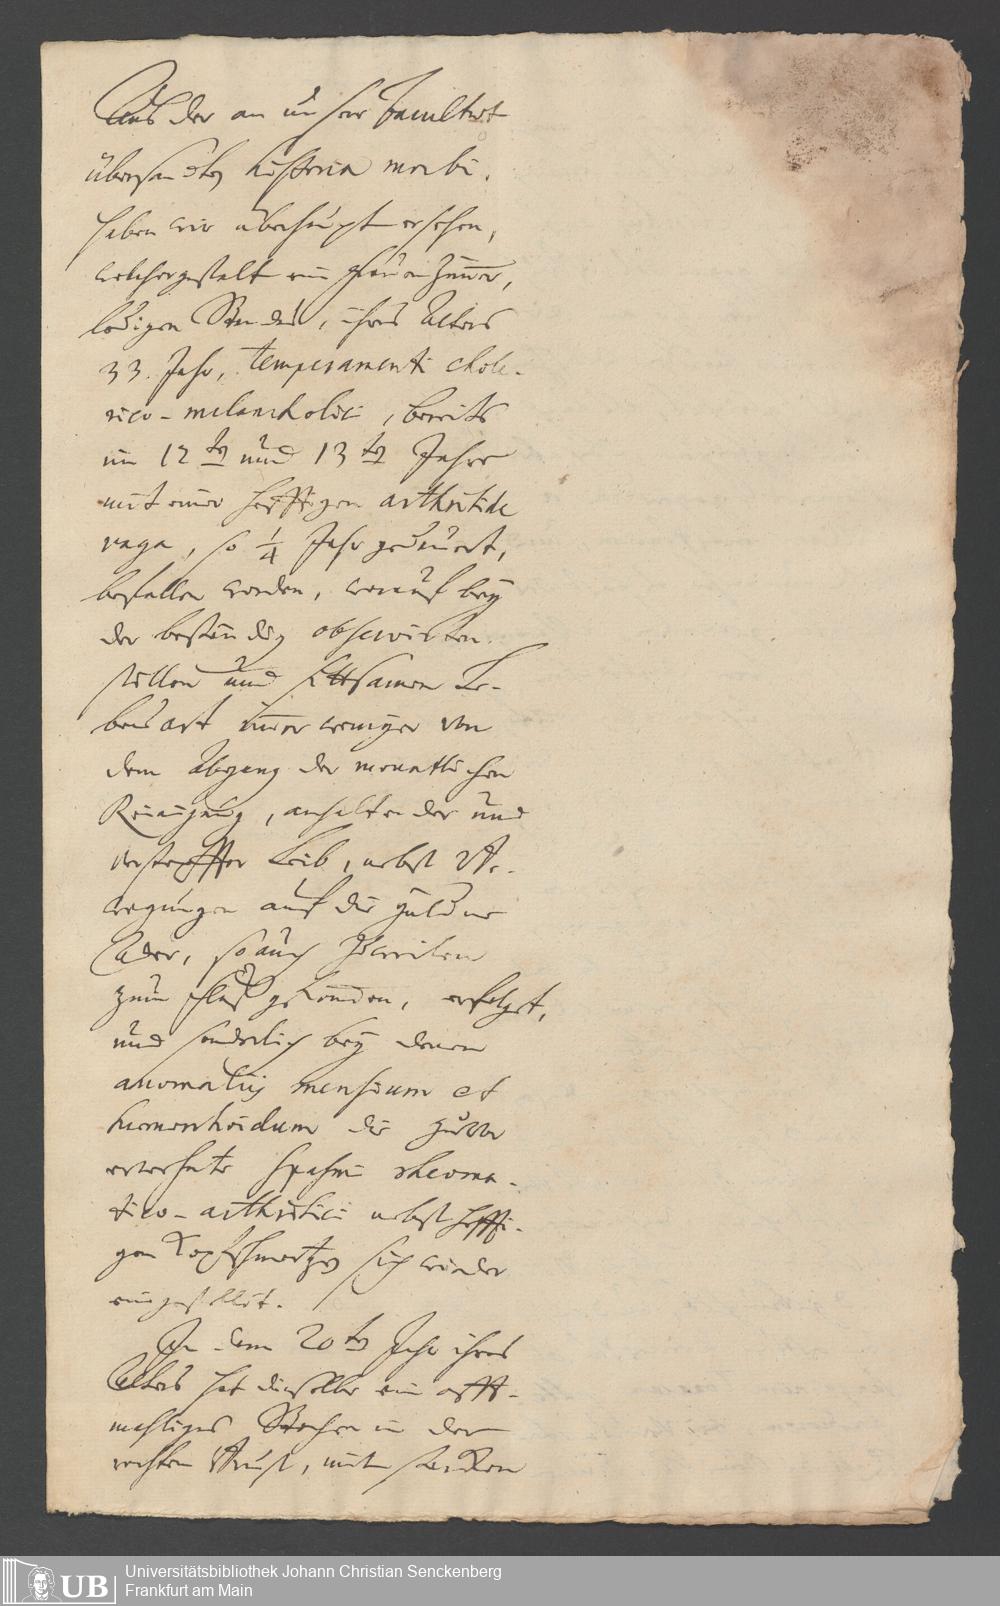 Aus der an unsere Facultæt
übersandten historia morbi,
haben wir überhaupt ersehen,
welchergestalt ein Frauenzimer,
ledigen Standes, ihres Alters
33. Jahr, temperamenti chole-
rico-melancholici, bereits
im 12ten und 13ten Jahre
mit einer hefftigen arthritide
vaga, so 1/4 Jahr gedauert,
befallen worden, worauf bey
der beständig observirten
stillen und sittsamen Le-
bens art imer weniger von
dem Abgang der monatlichen
Reinigung, anhaltender und
verstopffter Leib, nebst Be-
wegungen auf die guldene
Ader, so auch zuweilen
zum fluß gekommen, erfolget,
und sonderlich bey denen
anomaliis mensium et
hæmorrhoidum die zuvor
erwehnte spasmi rheuma-
tico-arthritici nebst hefti-
gen Kopfschmertzen sich wieder
eingestellet.
In dem 20ten Jahr ihres
Alters hat dieselbe ein offt-
mahliges Stechen in der
rechten Brust, mit starken